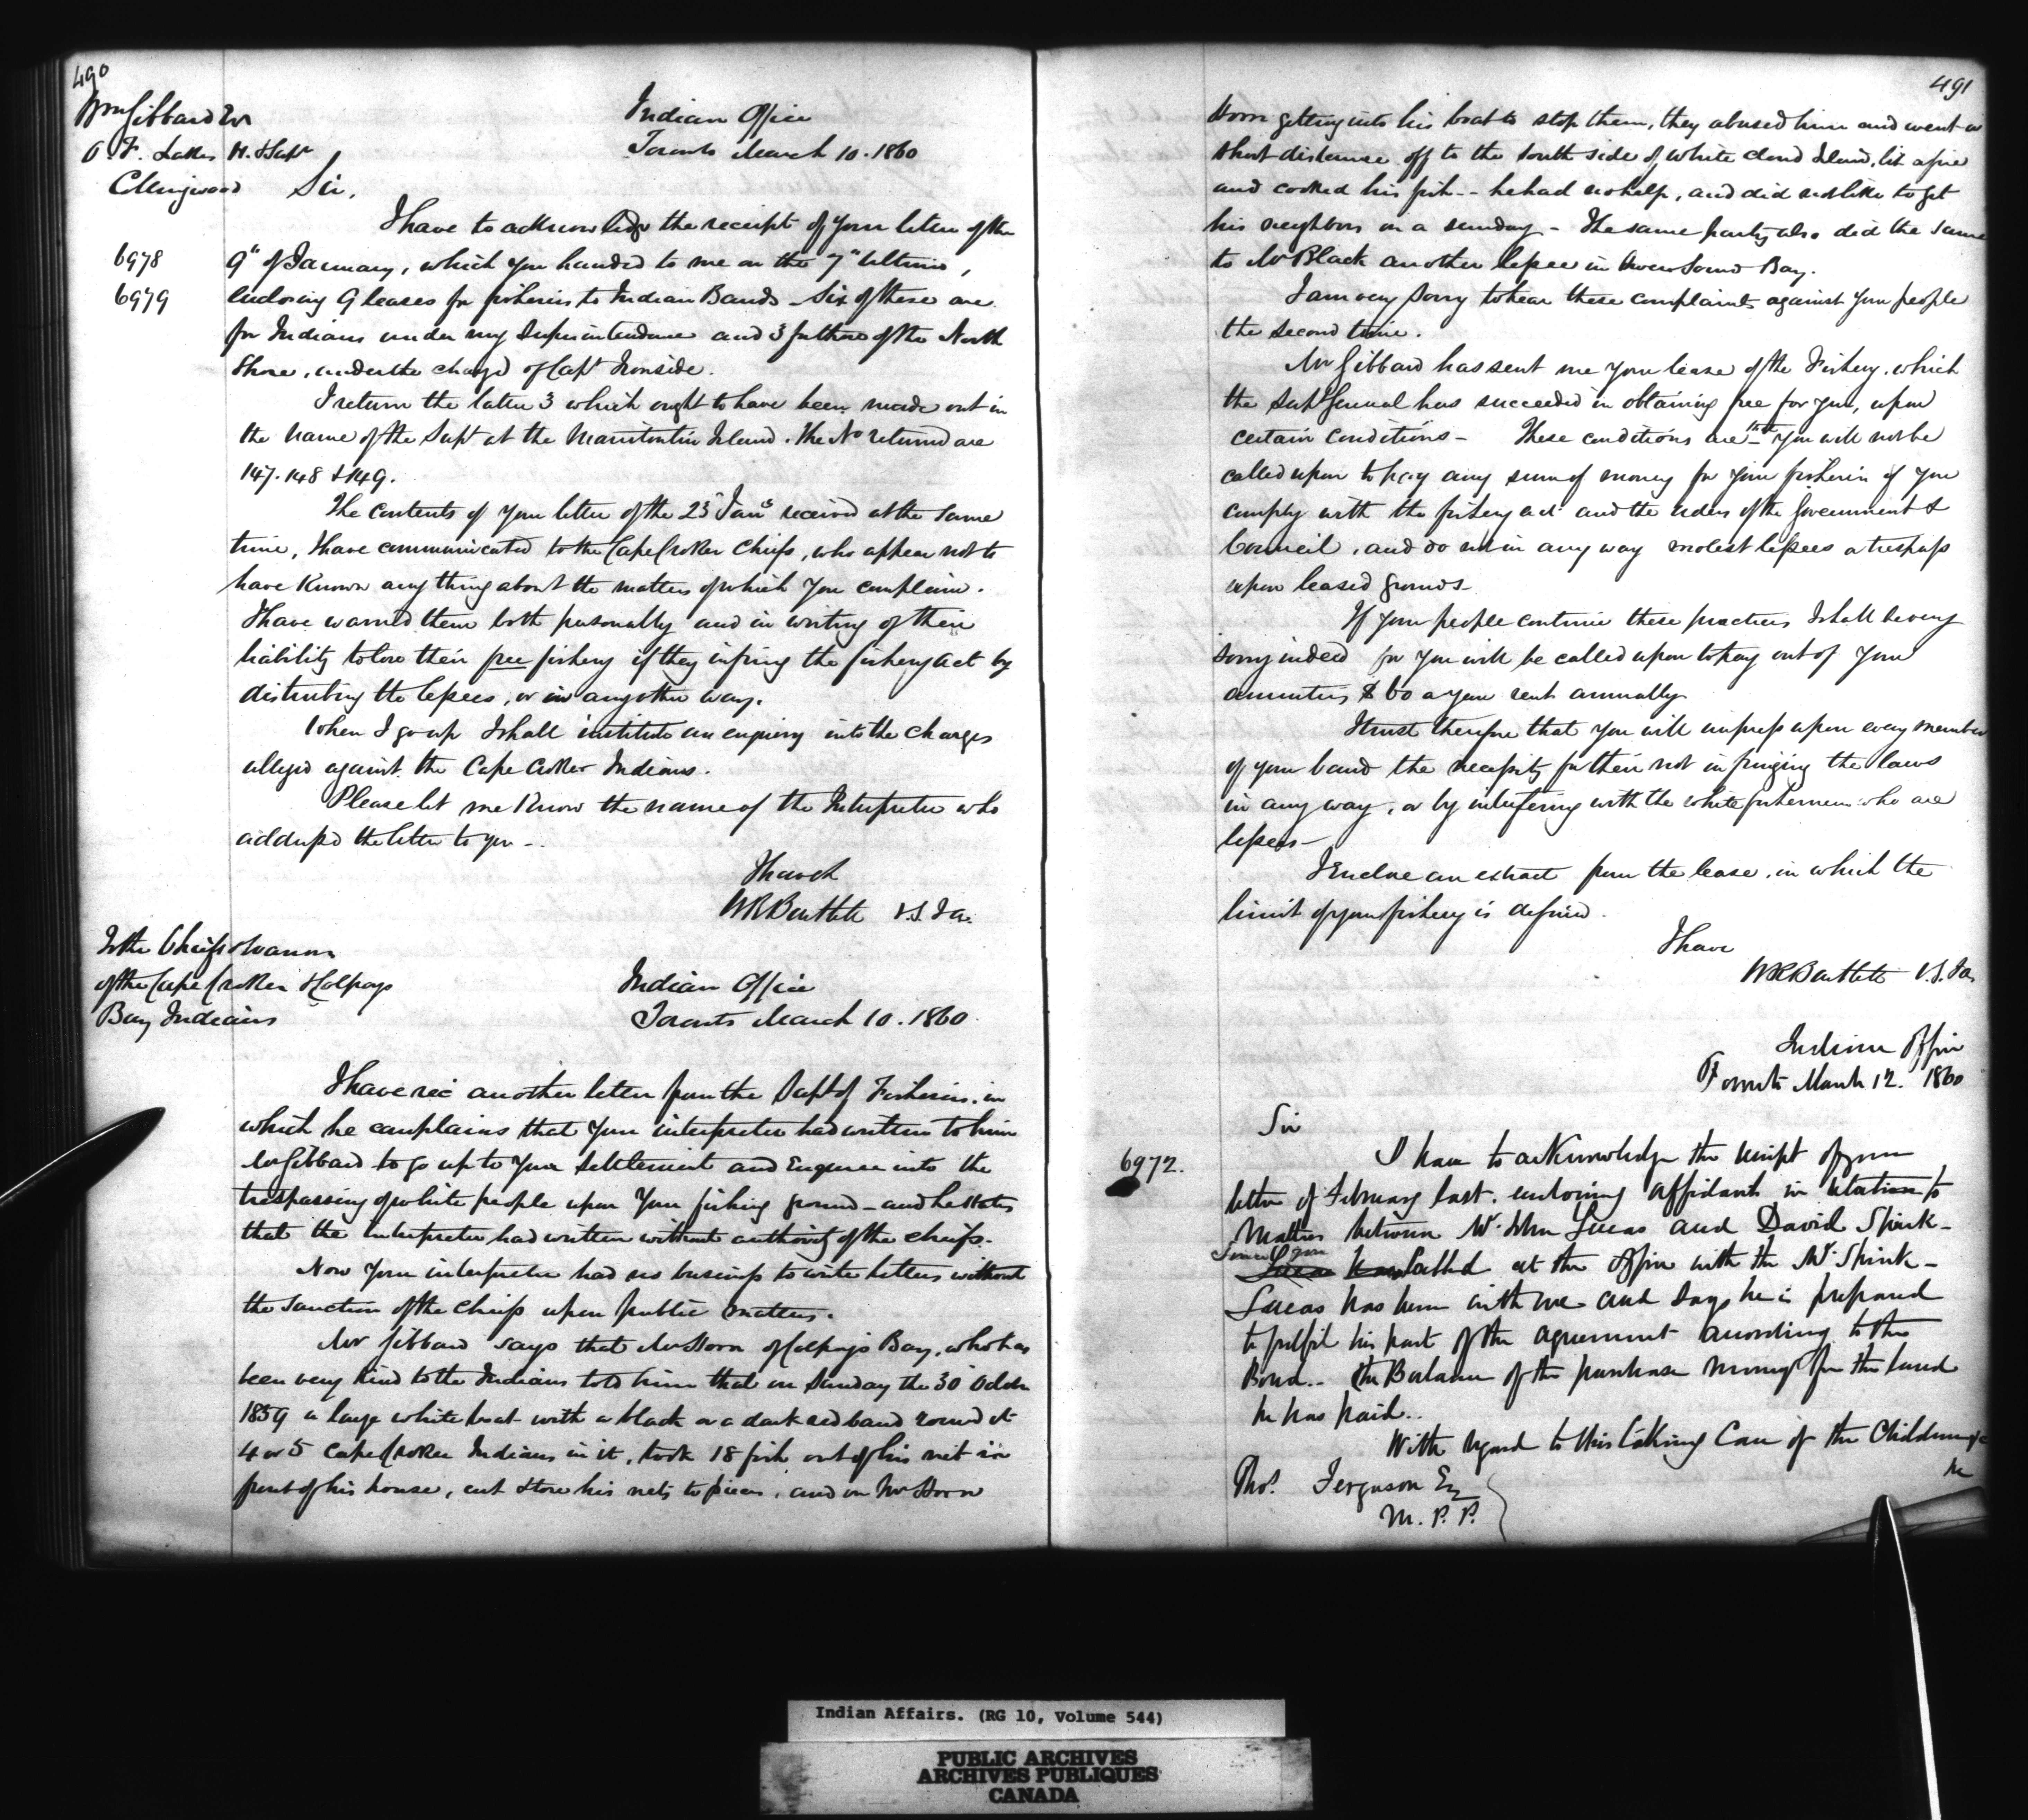 490
Wm Gibbard Esr
O. F. Lakes H. & Supr
Collingwood
Indian Office
Toronto March 10. 1860
Sir,
I have to acknowledge the receipt of your letter of the
6978
9" of January, which you handed to me on the 7" Ultimo,
6979
enclosing 9 leases for fisheries to Indian Bands - Six of these are
for Indians under my Superintendence and 3 for those of the North
Shore, under the charge of Capt Ironside.
I return the latter 3 which ought to have been made out in
the name of the Supt at the Manitoulin Island. The Nos returned are
147. 148 & 149.
The contents of your letter of the 25 Jany received at the same
time, I have communicated to the Cape Croker Chiefs, who appear not to
have known any thing about the matters of which you complain.
I have warned them both personally and in writing of their
liability to lose their free fishery if they infringe the fishery act by
disturbing the lessees, or in any other way.
When I go up I shall institute an enquiry into the charges
alleged against the Cape Croker Indians.
Please let me know the name of the Interpreter who
addressed the letter to you -
I have &
WR Bartlett V.S. I a.
To the Chiefs & Warriors
of the Cape Croker & Colpoys
Bay Indians
Indian Office
Toronto March 10. 1860
I have rec another letter from the Supt of Fisheries, in
which he complains that your interpreter had written to him
Mr Gibbard to go up to your settlement and enquire into the
trespassing of white people upon your fishing ground - and he states
that the interpreter had written without authority of the chiefs.
Now your interpreter had no business to write letters without
the sanction of the chiefs upon public matters.
Mr Gibbard says that Mr Horn of Colpoys Bay, who has
been very kind to the Indians told him that on Sunday the 30 October
1859 a large white boat with a black or a dark red band round it
4 or 5 Cape Croker Indians in it, took 18 fish out of his net in
front of his house, cut & tore his nets to pieces, and on Mr Horn
491
Horn getting into his boat to stop them, they abused him and went a
short distance off to the south side of white cloud Island, lit a fire
and cooked his fish - - he had no help, and did not like to get
his neighbors on a sunday - The same party also did the same
to Mr Black another lessee in Owen Sound Bay.
I am very sorry to hear these complaints against your people
the second time.
Mr Gibbard has sent me your lease of the Fishery, which
the Supt General has succeeded in obtaining free for you, upon
certain conditions - These conditions are - 1st You will not be
called upon to pay any sum of money for your fisheries if you
comply with the fishery act and the orders of the Government &
Council, and do not in any way molest lessees or trespass
upon leased grounds -
If your people continue these practices I shall be very
sorry indeed for you will be called upon to pay out of your
annuities $ 60 a year rent annually
I trust therefore that you will impress upon every member
of your band the necessity for their not infringing the laws
in any way, or by interfering with the white fishermen who are
lessees -
I Enclose an extract from the lease, in which the
limit of your fishery is defined.
I have
WR Bartlett V.S. I a.
Indian Office
Toronto March 12. 1860
Sir
6972.
I have to acknowledge the receipt of your
letter of February last, enclosing affidavits in relation to
Matters between Mr. John Lucas and David Spink -
called at the Office with the Mr. Spink -
Lucas has been with me and says he is prepared
to fulfil his part of the agreement according to the
Bond - The Balance of the purchase money for the land
he has paid..
With regard to this taking Care of the Children &c
he
Thos. Ferguson Esq
M. P. P.
Indian Affairs. (RG 10, Volume 544)
PUBLIC ARCHIVES
ARCHIVES PUBLIQUES
CANADA